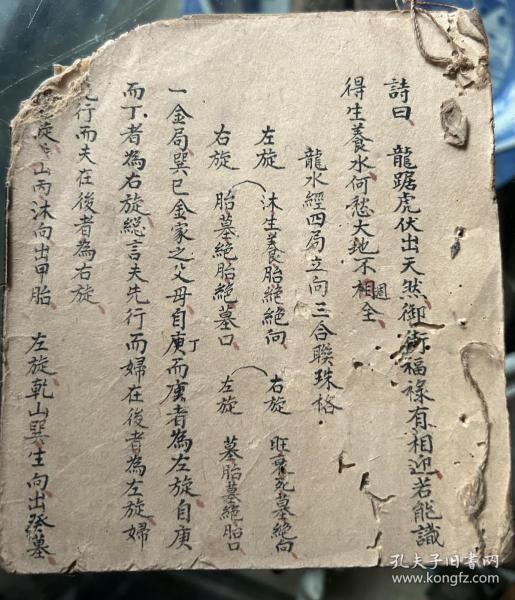 詩曰　龍踞虎伏出天然御街福祿有相迎若能識
得生養水何愁大地不相週全
龍水經四局立向三合聯珠格
左旋　沐生養胎絕絕向　右旋　旺衰死墓絕向
右旋　胎墓絕胎絕墓口　左旋　墓胎墓絕胎口
一金局巽巳金家之父母自庚丁而庚者為左旋自庚
而丁者為右旋總言夫先行而婦在後者為左旋婦
行而夫在後者為右旋
旋　山丙沐向出甲胎　左旋乾山巽生向出癸墓
孔夫子旧书网
www.kongfz.com